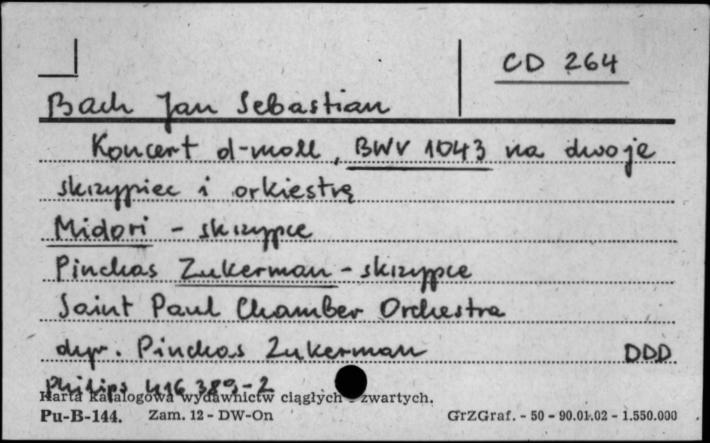 CD 264
Bach Jan Sebastian
Koncert d-moll, BWV 1043 na dwoje
skrzypiec i orkiestrę
Midori - skrzypce
Pinchas Zukerman - skrzypce
Saint Paul Chamber Orchestra
dyr. Pinchas Zukerman DDD
Philips 416 389-2
Karta katalogowa wydawnictw ciągłych i zwartych.
Pu-B-144. Zam. 12 - DW-On GrZGraf. - 50 - 90.01.02 - 1.550.000